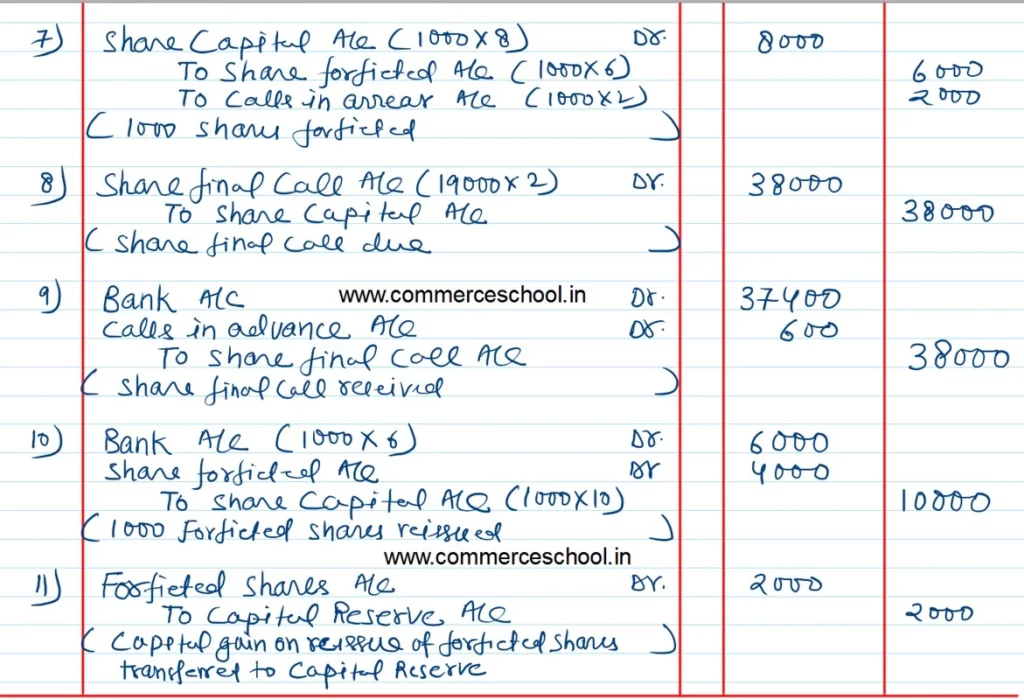 7) Share Capital A/c (1000 X 8) Dr. 8000
To Share forficted A/c (1000 X 6) 6000
To Calls in arrear A/c (1000 X 2) 2000
( 1000 shares forficted )
8) Share final Call A/c (19000 X 2) Dr. 38000
To Share Capital A/c 38000
( Share final call due )
9) Bank A/C www.commerceschool.in Dr. 37400
Calls in advance A/c Dr. 600
To Share final Call A/c 38000
( Share final call received )
10) Bank A/c (1000 X 6) Dr. 6000
Share forficted A/c Dr 4000
To Share Capital A/c (1000X10) 10000
( 1000 Forficted shares reissued )
www.commerceschool.in
11) Forfieted Shares A/c Dr. 2000
To Capital Reserve A/c 2000
( Capital gain on reissue of forficted shares )
transferred to Capital Reserve